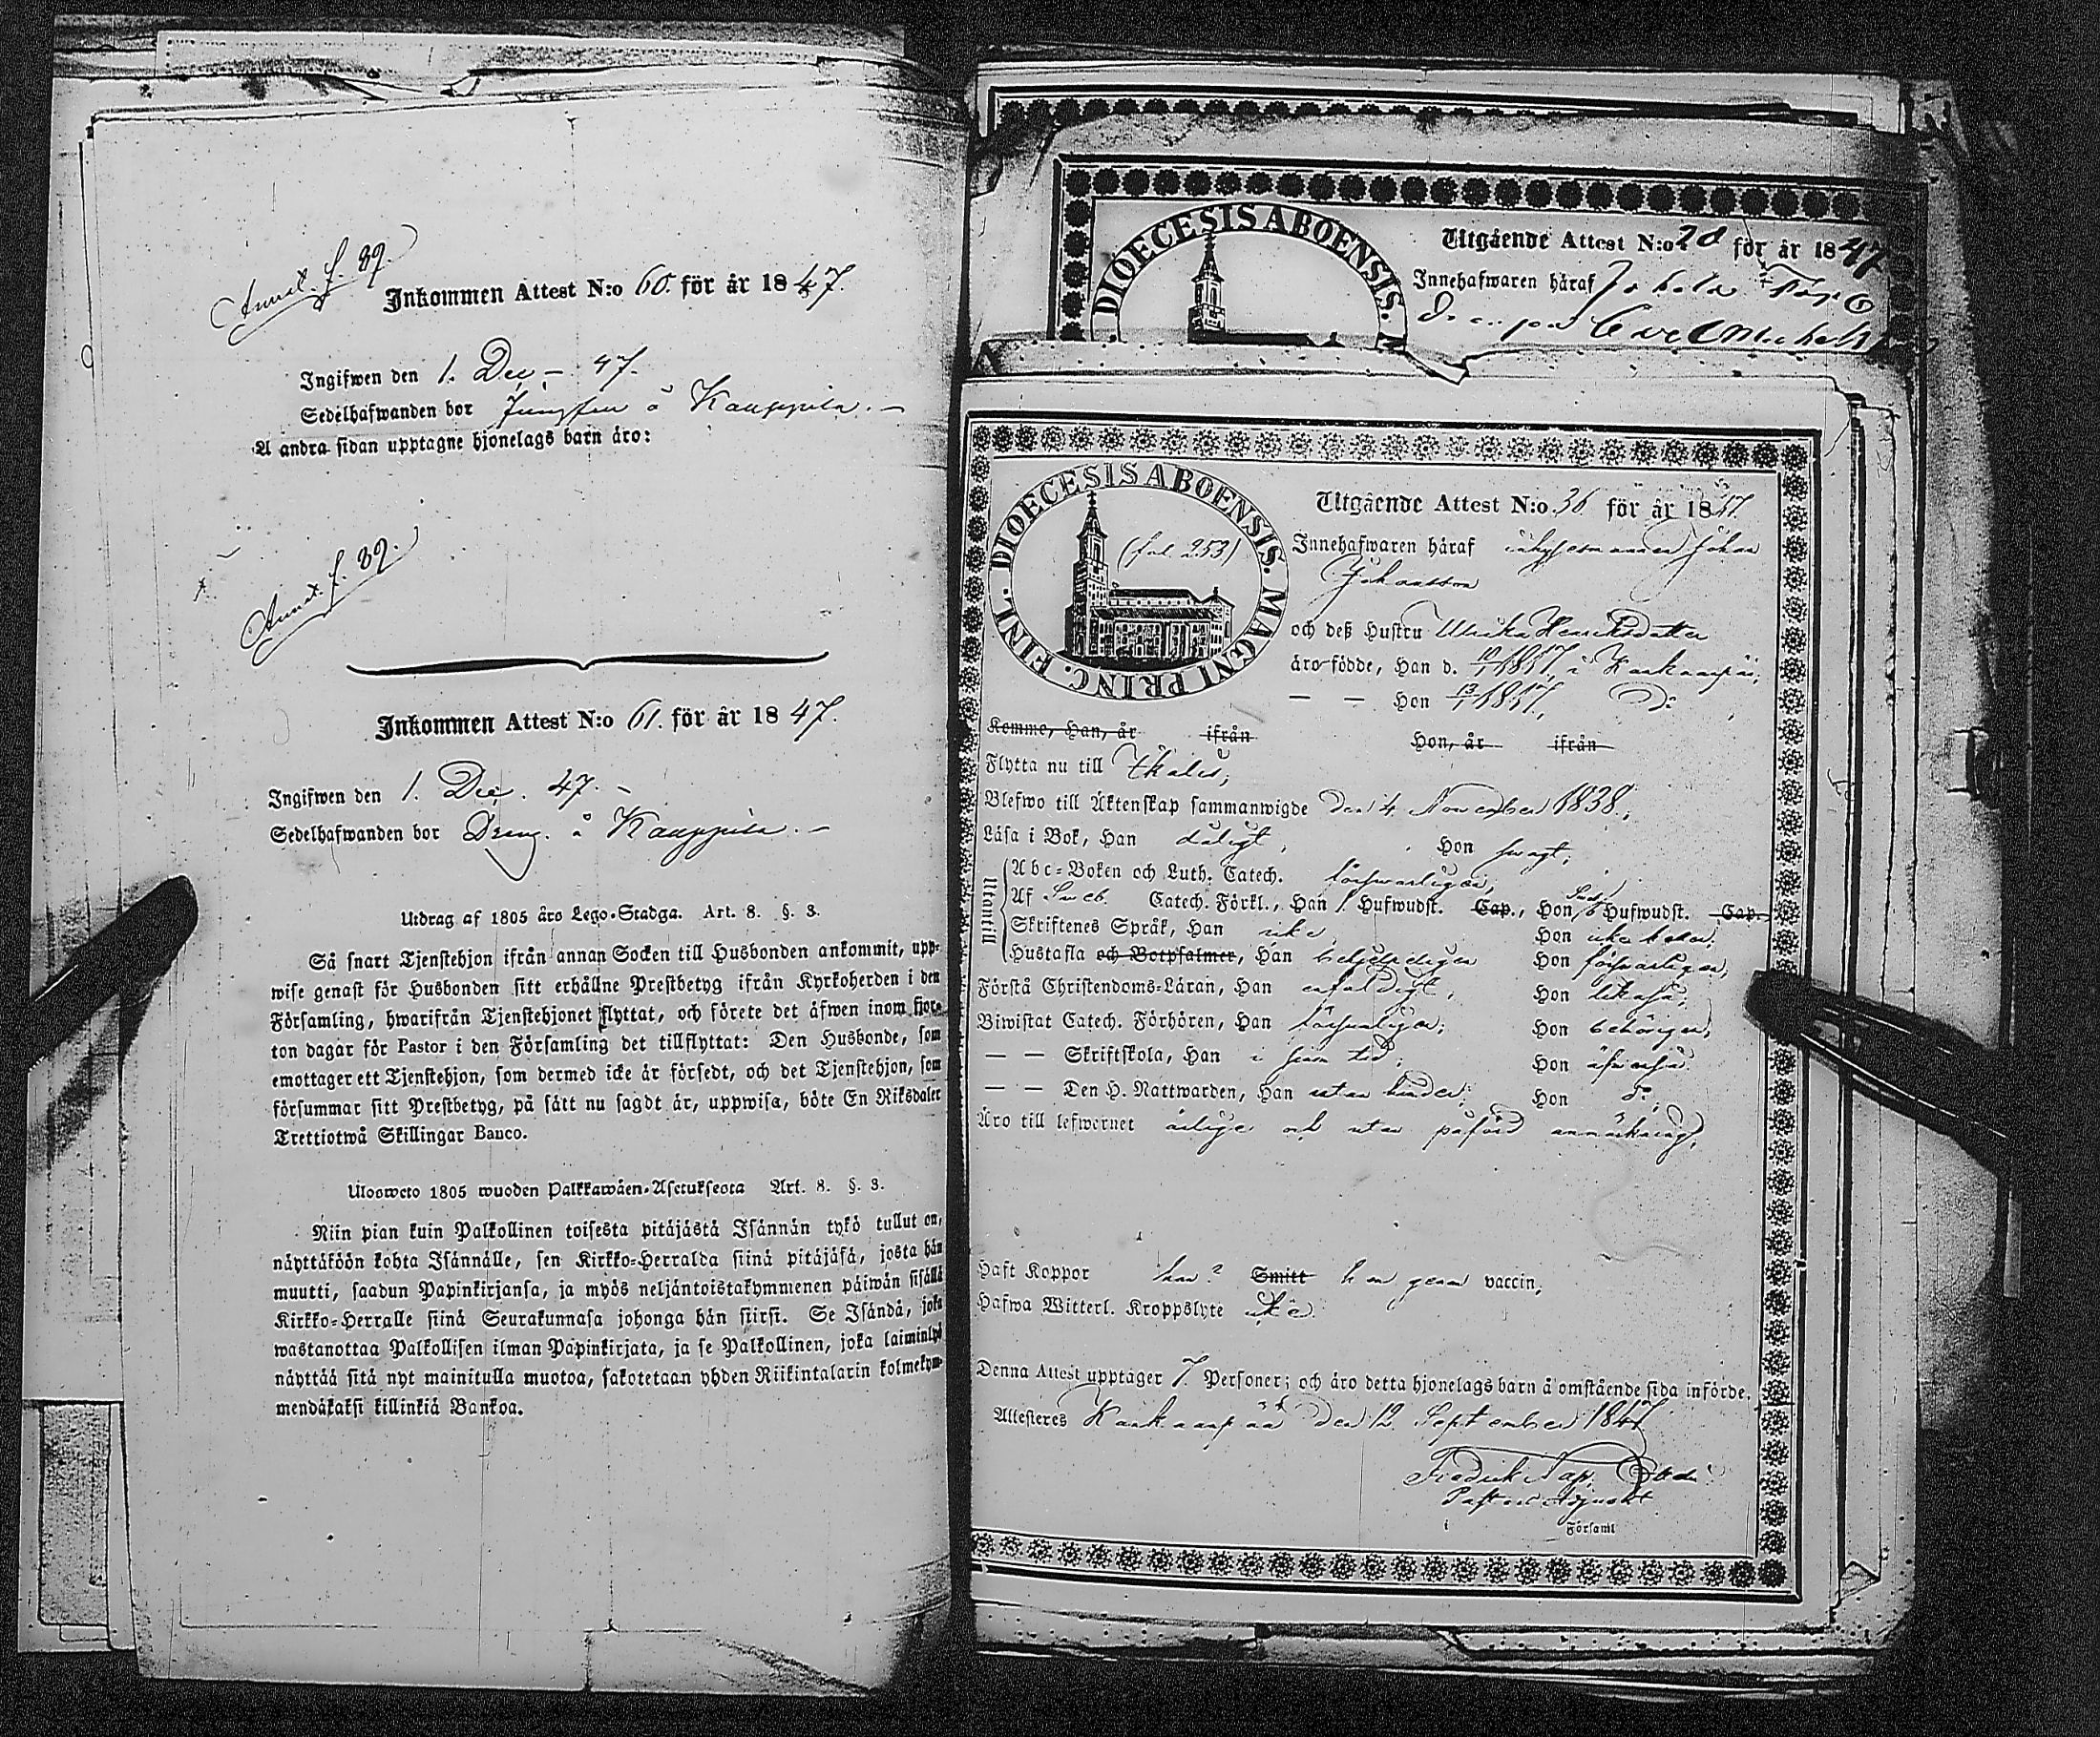 Annot. f. 89
Inkommen Attest N:o 60. för år 1847.
Ingifwen den 1. Dec. – 47.
Sedelhafwanden bor Jungfru å Kauppila. –
Å andra sidan upptagne hjonelags barn äro:
Annot. f. 89.
Inkommen Attest N:o 61. för år 1847.
Ingifwen den 1. Dec. 47. –
Sedelhafwanden bor Dreng. å Kauppila. –
Utdrag af 1805 års Lego-Stadga. Art. 8. §. 3.
Så snart Tjenstehjon ifrån annan Socken till Husbonden ankommit, upp-
wise genast för Husbonden sitt erhållne Prestbetyg ifrån Kyrkoherden i den
Församling, hwarifrån Tjenstehjonet flyttat, och förete det äfwen inom fjor-
ton dagar för Pastor i den Församling det tillflyttat: Den Husbonde, som
emottager ett Tjenstehjon, som dermed icke är försedt, och det Tjenstehjon, som
försummar sitt Prestbetyg, på sätt nu sagdt är, uppwisa, böte En Riksdaler
Trettiotwå Skillingar Banco.
Uloswето 1805 wuoden Palkkawäen-Asetuksesta Art. 8. §. 3.
Niin pian kuin Palkollinen toisesta pitäjästä Isännän tykö tullut on,
näyttäköön kohta Isännälle, sen Kirkko-Herralda siinä pitäjäsä, josta hän
muutti, saadun Papinkirjansa, ja myös neljäntoistakymmenen päiwän sisällä
Kirkko-Herralle siinä Seurakunnasa johonga hän siirsi. Se Isändä, joka
wastanottaa Palkollisen ilman Papinkirjata, ja se Palkollinen, joka laiminlyö
näyttää sitä nyt mainitulla muotoa, sakotetaan yhden Riikintalarin kolmekym-
mendäkaksi killinkiä Bankoa.
DIOECESIS ABOENSIS. M
Utgående Attest N:o 28 för år 1847
Innehafwaren häraf
DIOECESIS ABOENSIS. MAGNI PRINC. FINL.
(fol. 253)
Utgående Attest N:o 36 för år 1847
Innehafwaren häraf inhysesmannen Johan
Johansson
och deß Hustru Ulrika Henriksdotter
äro födde, Han d. 1817, i Kankaanpää;
— — Hon 1817, D:o
Komme, Han, år ifrån Hon, år ifrån
Flytta nu till Ikalis;
Blefwo till Äktenskap sammanwigde den 4 November 1838.;
Läsa i Bok, Han dåligt, Hon swagt;
Utantill
Abc-Boken och Luth. Catech. försvarligen,
Af Sweb. Catech. Förkl., Han 1 Hufwudst. Cap., Hon 6 Hufwudst. Cap.
Skriftenes Språk, Han icke Hon icke heller.
Hustafla och Botpsalmer, Han behjelpeligen Hon försvarligen,
Förstå Christendoms-Läran, Han enfaldigt, Hon likaså;
Biwistat Catech. Förhören, Han försvarligen; Hon behörigen,
— — Skriftskola, Han i sinom tid, Hon äfwenså
— — Den H. Nattwarden, Han utan hinder; Hon d:o;
Äro till lefwernet ärlige och utan påförd anmärkning,
Haft Koppor han ? Smitt hon genom vaccin,
Hafwa Witterl. Kroppslyte icke.
Denna Attest upptager 7. Personer; och äro detta hjonelags barn å omstående sida införde.
Attesteres Kankaanpää den 12 September 1847
Fredrik Nap.
Pastors Adjunkt
i Församl